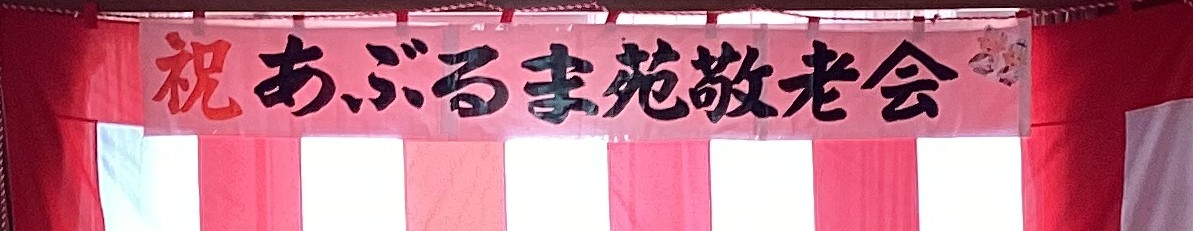 祝 あぶるま苑敬老会